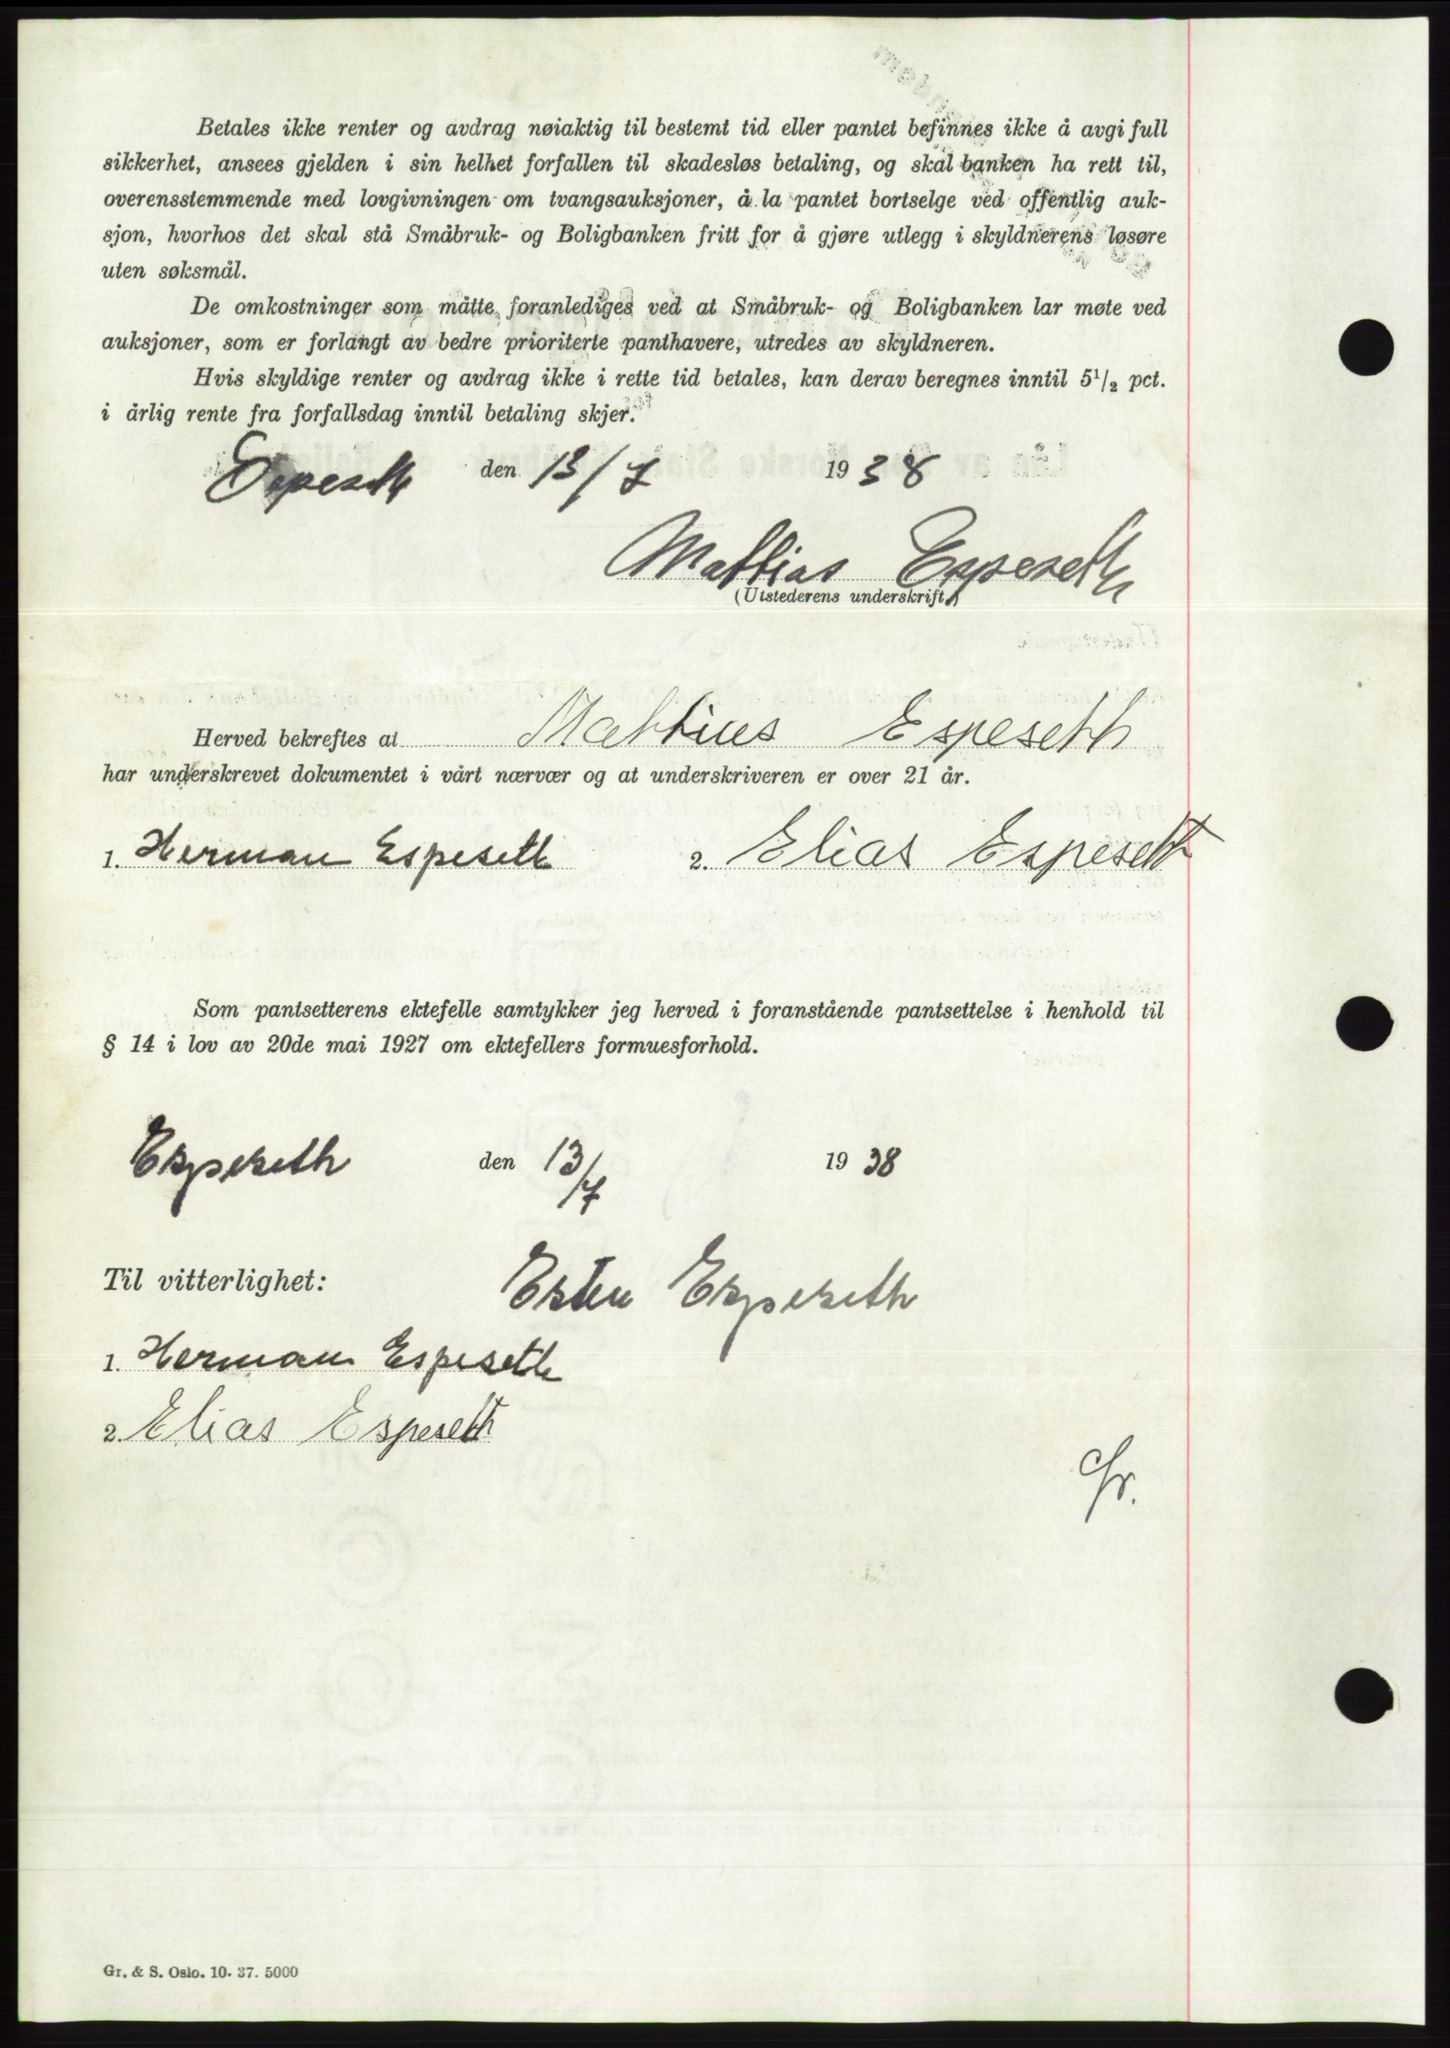 Betales ikke renter og avdrag nøiaktig til bestemt tid eller pantet befinnes ikke å avgi full
sikkerhet, ansees gjelden i sin helhet forfallen til skadesløs betaling, og skal banken ha rett til,
overensstemmende med lovgivningen om tvangsauksjoner, å la pantet bortselge ved offentlig auk-
sjon, hvorhos det skal stå Småbruk- og Boligbanken fritt for å gjøre utlegg i skyldnerens løsøre
uten søksmål.
De omkostninger som måtte foranlediges ved at Småbruk- og Boligbanken lar møte ved
auksjoner, som er forlangt av bedre prioriterte panthavere, utredes av skyldneren.
Hvis skyldige renter og avdrag ikke i rette tid betales, kan derav beregnes inntil 5½ pct.
i årlig rente fra forfallsdag inntil betaling skjer.
Espeseth den 13/7 1938
Mattias Espeseth
(Utstederens underskrift)
Herved bekreftes at Mattias Espeseth
har underskrevet dokumentet i vårt nærvær og at underskriveren er over 21 år.
1. Herman Espeseth 2. Elias Espeseth
Som pantsetterens ektefelle samtykker jeg herved i foranstående pantsettelse i henhold til
§ 14 i lov av 20de mai 1927 om ektefellers formuesforhold.
Espeseth den 13/7 1938
Til vitterlighet: Espeseth
1. Herman Espeseth
2. Elias Espeseth
Gr. & S. Oslo. 10. 37. 5000